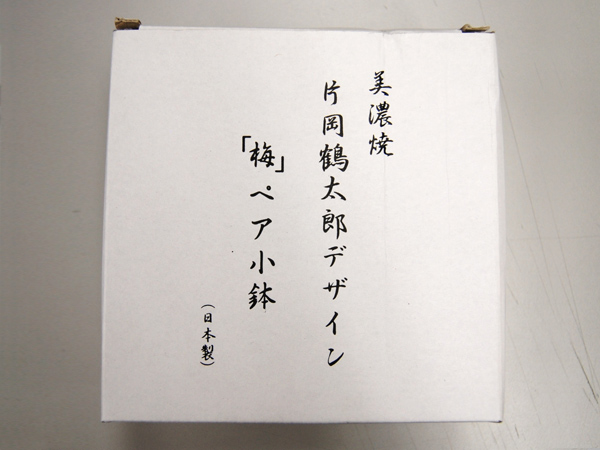 美濃焼
片岡鶴太郎デザイン
「梅」ペア小鉢
（日本製）